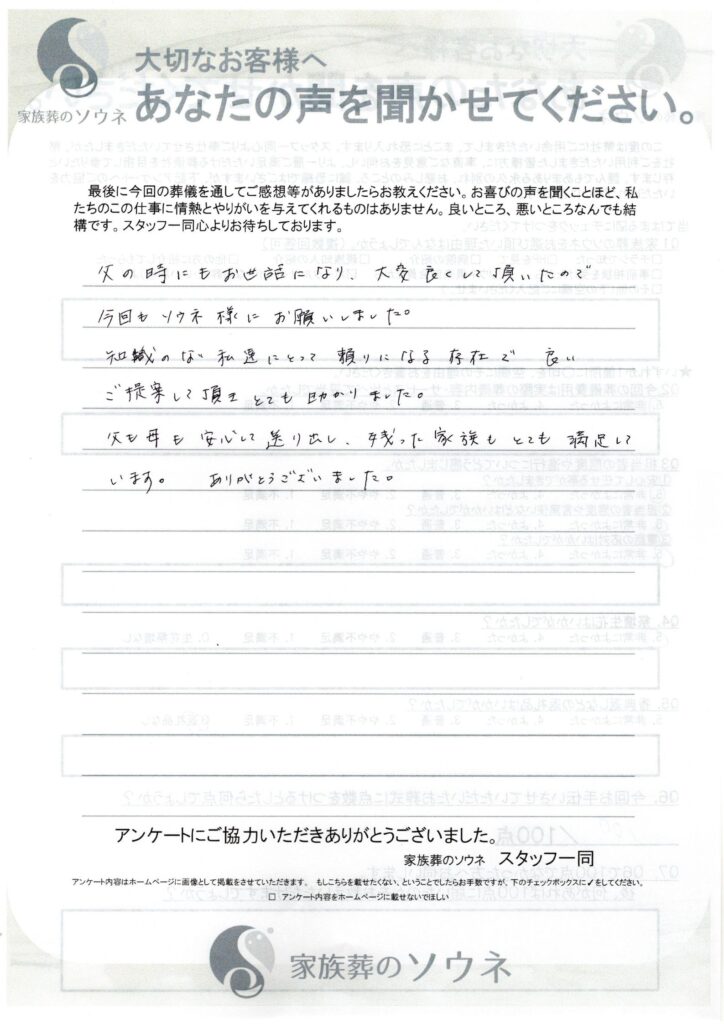 大切なお客様へ
家族葬のソウネ
あなたの声を聞かせてください。
最後に今回の葬儀を通してご感想等がありましたらお教えください。お喜びの声を聞くことほど、私
たちのこの仕事に情熱とやりがいを与えてくれるものはありません。良いところ、悪いところなんでも結
構です。スタッフ一同心よりお待ちしております。
父の時にもお世話になり、大変良くして頂いたので
今回もソウネ様にお願いしました。
知識のない私達にとって頼りになる存在で 良い
ご提案して頂き とても助かりました。
父も母も安心して送り出し、残った家族もとても満足して
います。 ありがとうございました。
アンケートにご協力いただきありがとうございました。
家族葬のソウネ スタッフ一同
アンケート内容はホームページに画像として掲載をさせていただきます。 もしこちらを載せたくない、ということでしたらお手数ですが、下のチェックボックスに✓をしてください。
□ アンケート内容をホームページに載せないでほしい
家族葬のソウネ